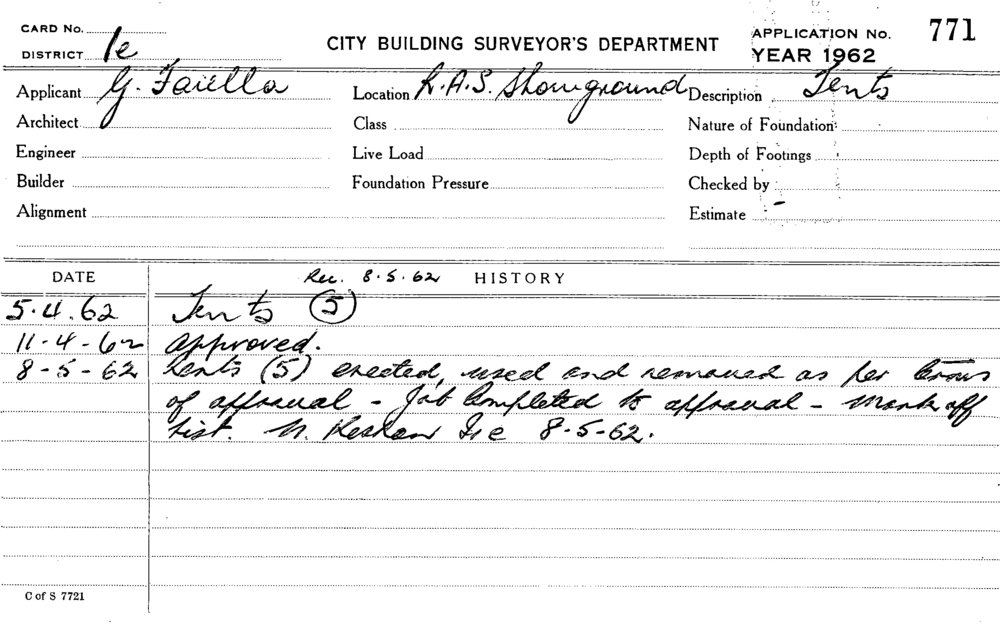 CARD No.
DISTRICT 1e
CITY BUILDING SURVEYOR'S DEPARTMENT
APPLICATION No. 771
YEAR 1962
Applicant G. Faiella
Location R.A.S. Showground
Description Tents
Architect
Class
Nature of Foundation
Engineer
Live Load
Depth of Footings
Builder
Foundation Pressure
Checked by
Alignment
Estimate
DATE
Rec. 8.5.62 HISTORY
5.4.62 Tents (5)
11-4-62 approved.
8-5-62 Tents (5) erected, used and removed as per terms
of approval - Job Completed to approval - Mark off
list. 8-5-62.
C of S 7721